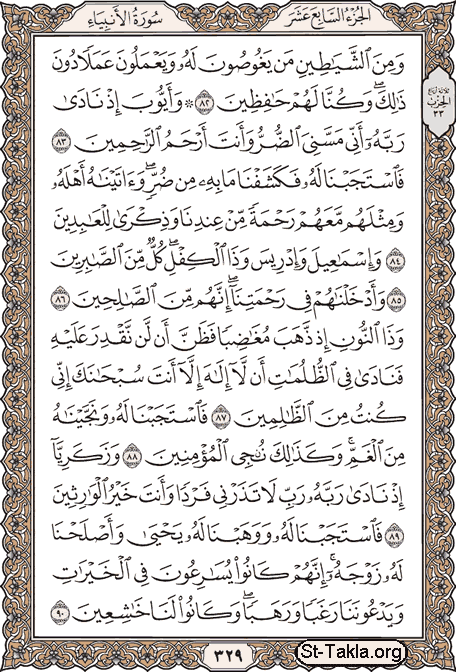 الجزء السابع عشر
سورة الأنبياء
وَمِنَ ٱلشَّيَٰطِينِ مَن يَغُوصُونَ لَهُۥ وَيَعۡمَلُونَ عَمَلٗا دُونَ
ذَٰلِكَۖ وَكُنَّا لَهُمۡ حَٰفِظِينَ ٨٢ ۞ وَأَيُّوبَ إِذۡ نَادَىٰ
رَبَّهُۥٓ أَنِّي مَسَّنِيَ ٱلضُّرُّ وَأَنتَ أَرۡحَمُ ٱلرَّٰحِمِينَ ٨٣
فَٱسۡتَجَبۡنَا لَهُۥ فَكَشَفۡنَا مَا بِهِۦ مِن ضُرّٖۖ وَءَاتَيۡنَٰهُ أَهۡلَهُۥ
وَمِثۡلَهُم مَّعَهُمۡ رَحۡمَةٗ مِّنۡ عِندِنَا وَذِكۡرَىٰ لِلۡعَٰبِدِينَ
٨٤ وَإِسۡمَٰعِيلَ وَإِدۡرِيسَ وَذَا ٱلۡكِفۡلِۖ كُلّٞ مِّنَ ٱلصَّٰبِرِينَ
٨٥ وَأَدۡخَلۡنَٰهُمۡ فِي رَحۡمَتِنَآۖ إِنَّهُم مِّنَ ٱلصَّٰلِحِينَ ٨٦
وَذَا ٱلنُّونِ إِذ ذَّهَبَ مُغَٰضِبٗا فَظَنَّ أَن لَّن نَّقۡدِرَ عَلَيۡهِ
فَنَادَىٰ فِي ٱلظُّلُمَٰتِ أَن لَّآ إِلَٰهَ إِلَّآ أَنتَ سُبۡحَٰنَكَ إِنِّي
كُنتُ مِنَ ٱلظَّٰلِمِينَ ٨٧ فَٱسۡتَجَبۡنَا لَهُۥ وَنَجَّيۡنَٰهُ
مِنَ ٱلۡغَمِّۚ وَكَذَٰلِكَ نُـۨجِي ٱلۡمُؤۡمِنِينَ ٨٨ وَزَكَرِيَّآ
إِذۡ نَادَىٰ رَبَّهُۥ رَبِّ لَا تَذَرۡنِي فَرۡدٗا وَأَنتَ خَيۡرُ ٱلۡوَٰرِثِينَ
٨٩ فَٱسۡتَجَبۡنَا لَهُۥ وَوَهَبۡنَا لَهُۥ يَحۡيَىٰ وَأَصۡلَحۡنَا
لَهُۥ زَوۡجَهُۥٓۚ إِنَّهُمۡ كَانُواْ يُسَٰرِعُونَ فِي ٱلۡخَيۡرَٰتِ
وَيَدۡعُونَنَا رَغَبٗا وَرَهَبٗاۖ وَكَانُواْ لَنَا خَٰشِعِينَ ٩٠
الحزب
٣٣
٣٢٩
St-Takla.org